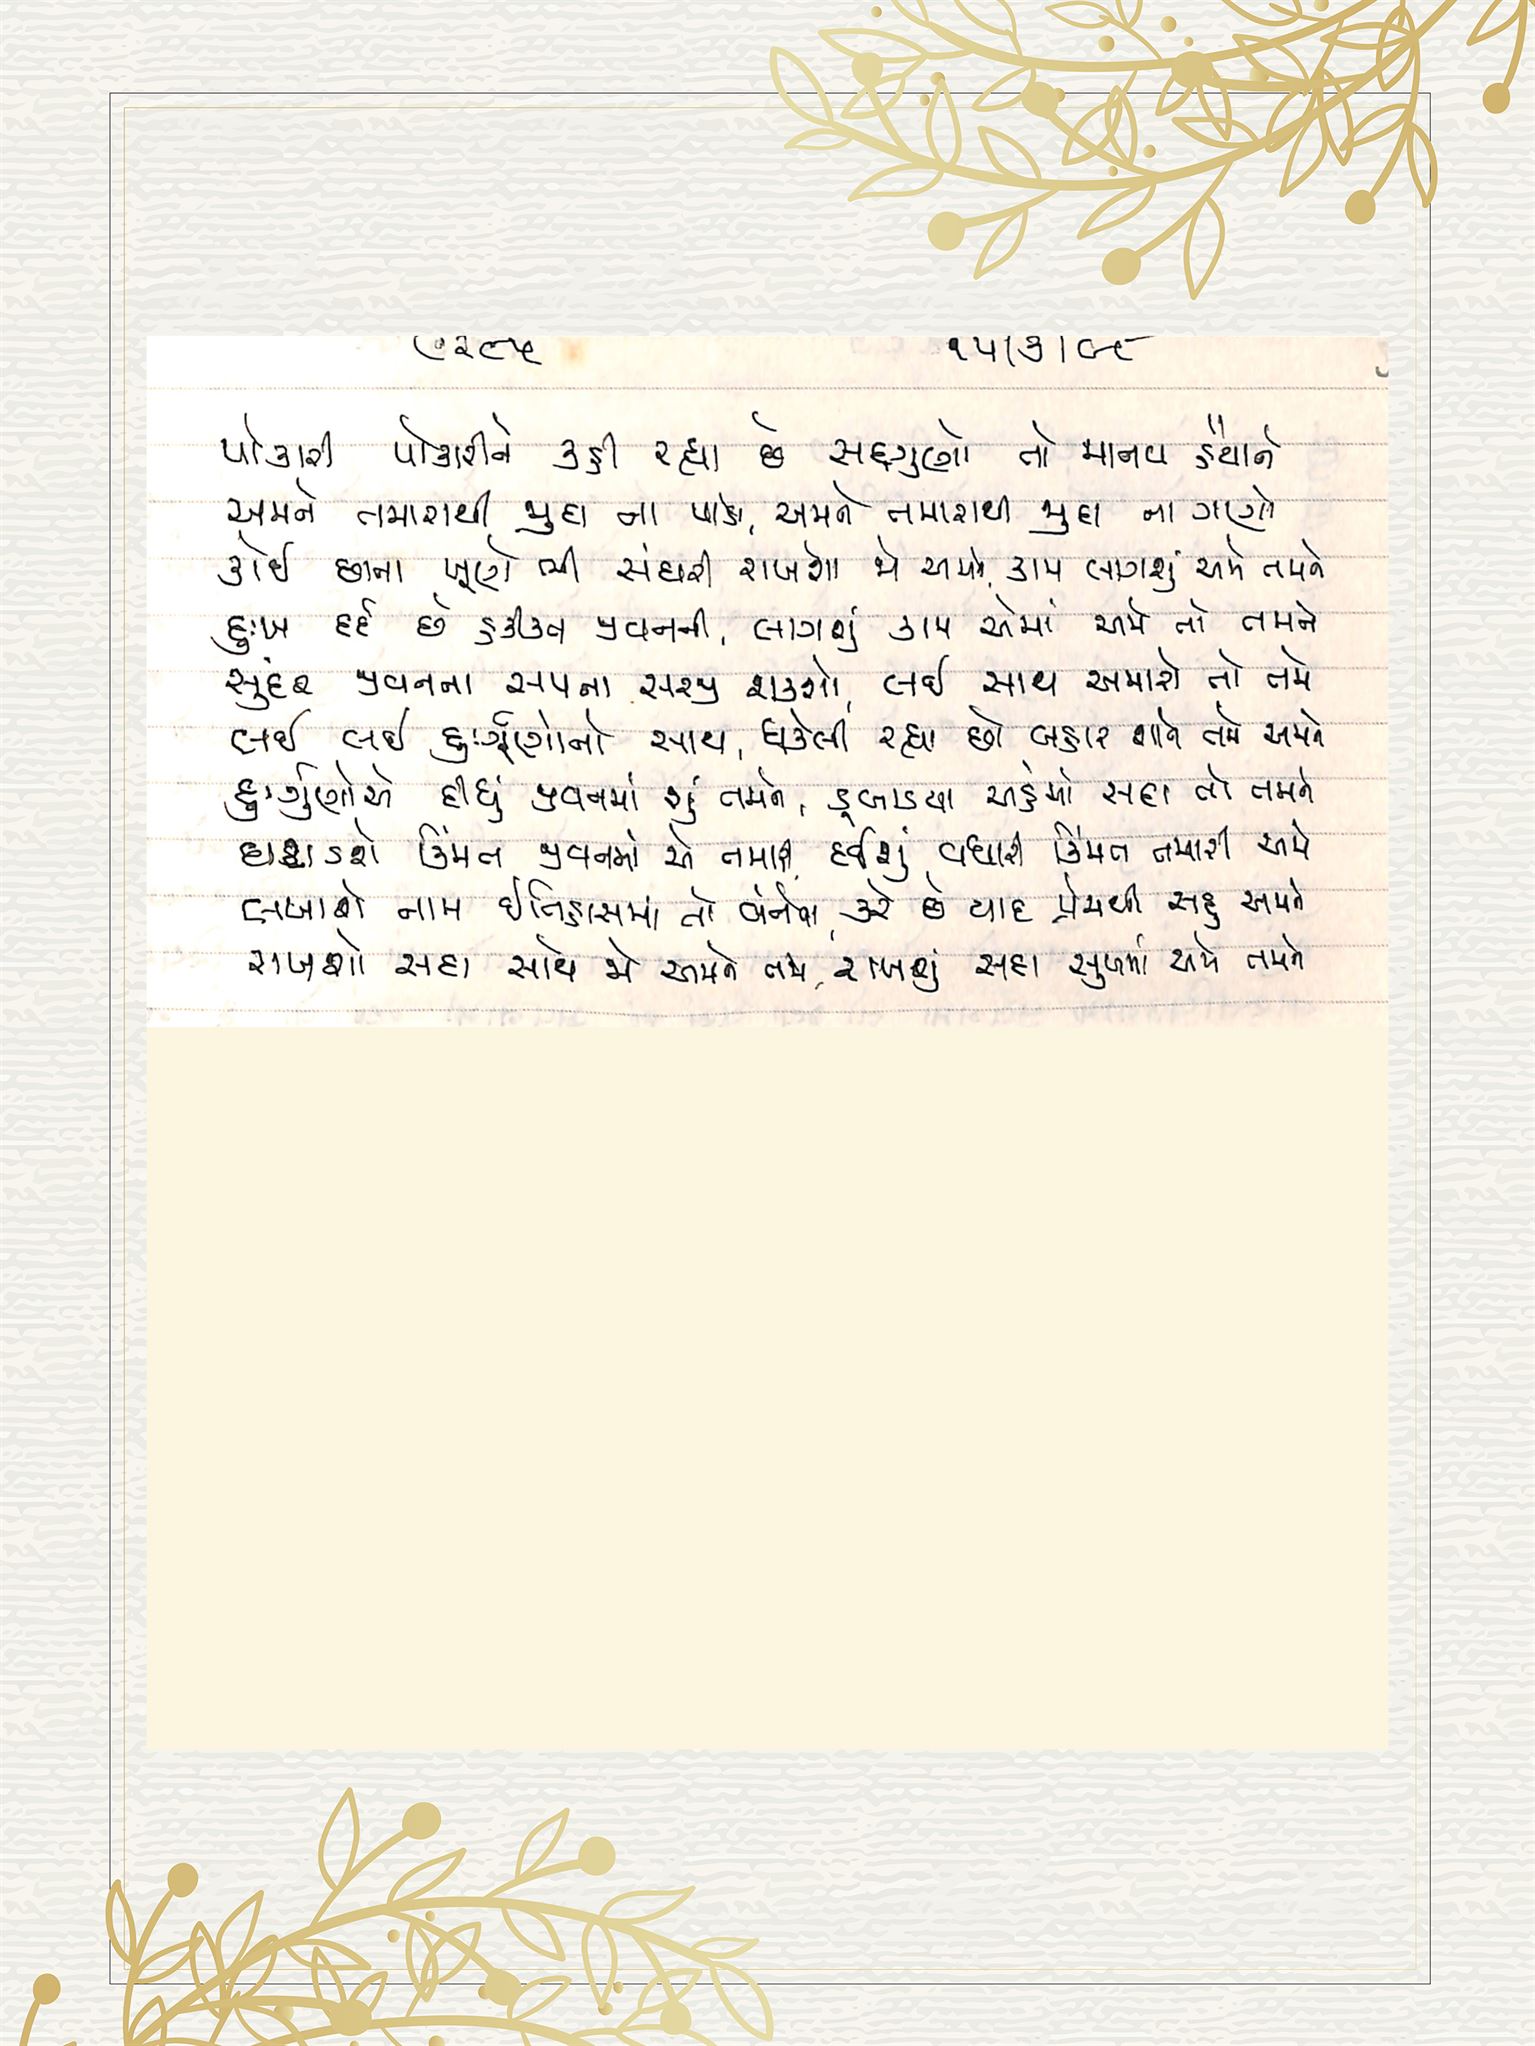 પોકારી પોકારીને કહી રહ્યા છે સદ્દગુણો તો માનવ હૈયાને
અમને તમારાથી જુદા ના પાડો, અમને તમારાથી જુદા ના ગણો
કોઈ છાના ખૂણે ભી સંઘરી રાખશો જો અમને, કામ લાગશું અમે તમને
દુઃખ દર્દ છે હકીકત જીવનની, લાગશું કામ એમાં અમે તો તમને
સુંદર જીવનના સપના સરજી શકશો, લઈ સાથ અમારો તો તમે
લઈ લઈ દુઃર્ગુણોનો સાથ, ધકેલી રહ્યા છો બહાર શાને તમે અમને
દુઃર્ગુણોએ દીધું જીવનમાં શું તમને, ડૂબાડયા અહંમાં સદા તો તમને
ઘટાડશે કિંમત જીવનમાં એ તમારી, દઈશું વધારી કિંમત તમારી અમે
લખાશે નામ ઈતિહાસમાં તો બંનેના, કરે છે યાદ પ્રેમથી સહુ અમને
રાખશો સદા સાથે જો અમને તમે, રાખશું સદા સુખમાં અમે તમને